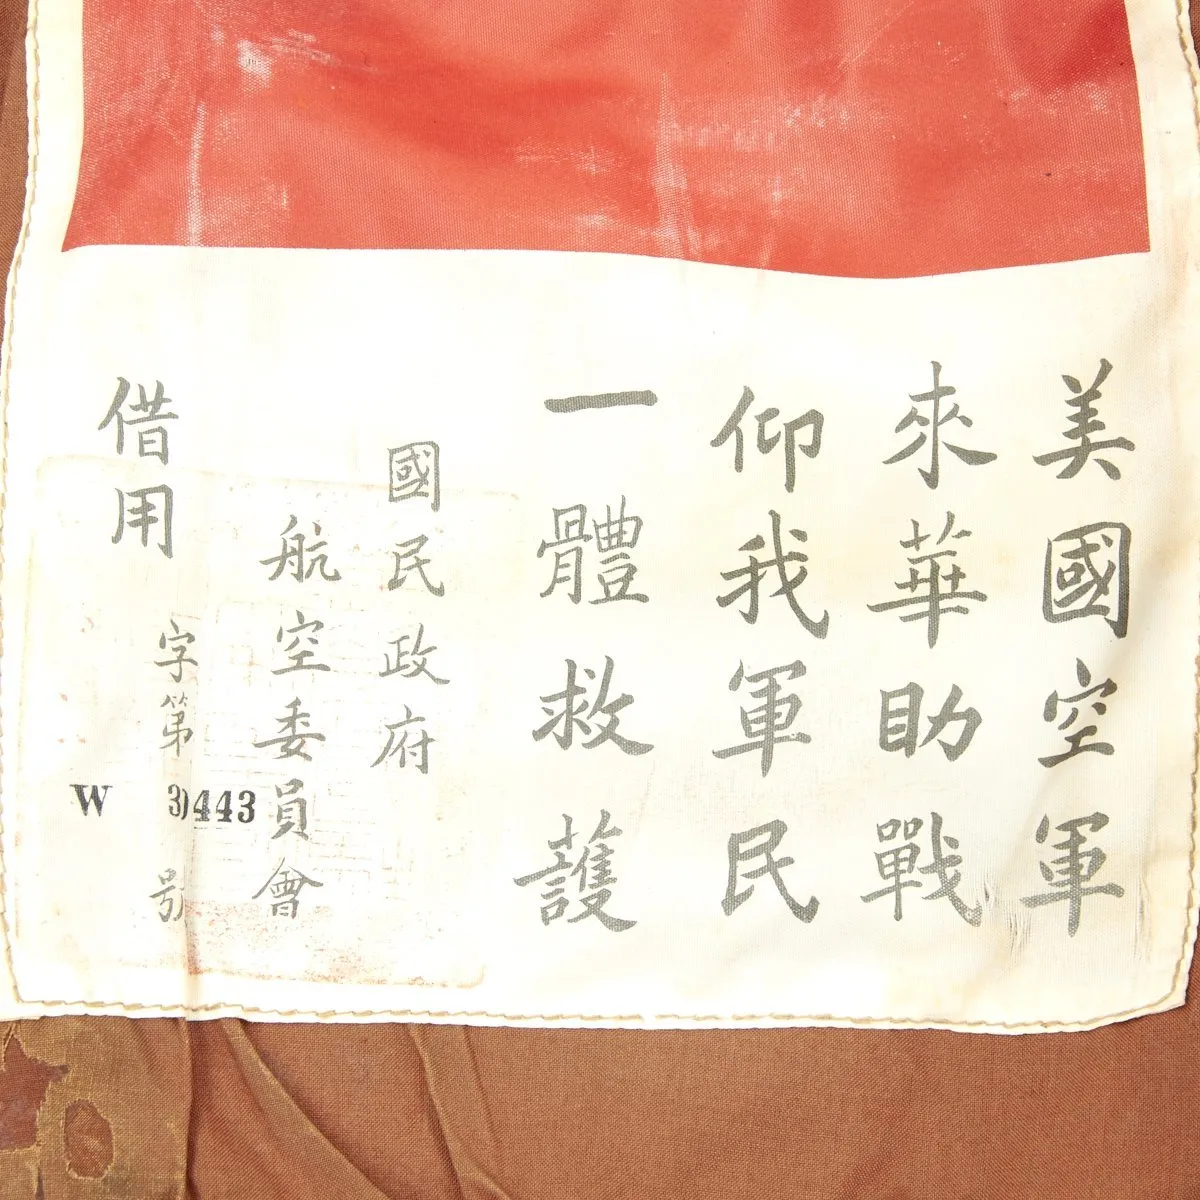 美國空軍
來華助戰
仰我軍民
一體救護
國民政府
航空委員會
借用
字第
W 30443
號